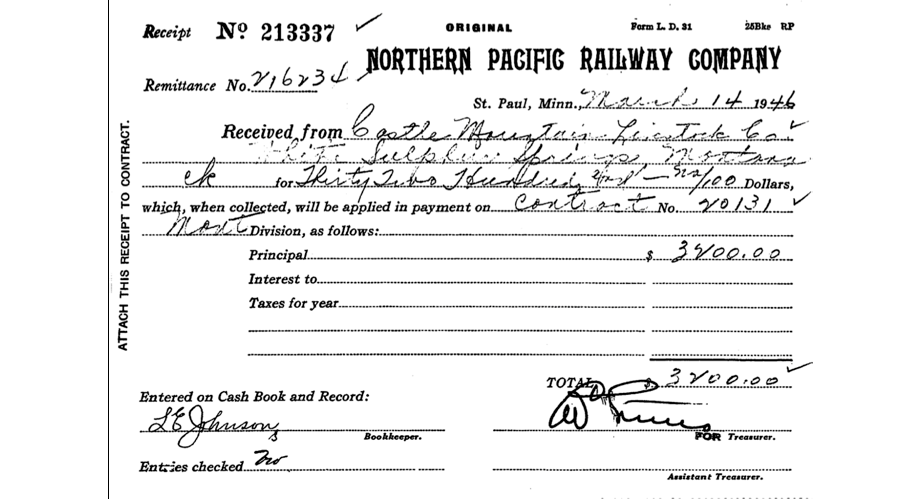 Receipt No 213337 ORIGINAL Form L. D. 31 25Bks RP
NORTHERN PACIFIC RAILWAY COMPANY
Remittance No. 216234
St. Paul, Minn., March 14 1946
Received from Castle Mountain Livestock Co
White Sulphur Springs, Montana
ck for Thirty Two Hundred and no/100 Dollars,
which, when collected, will be applied in payment on Contract No. 20131
Mont Division, as follows:
Principal $ 3200.00
Interest to
Taxes for year
TOTAL $ 3200.00
Entered on Cash Book and Record:
L E Johnson
Bookkeeper. FOR Treasurer.
Entries checked
Assistant Treasurer.
ATTACH THIS RECEIPT TO CONTRACT.